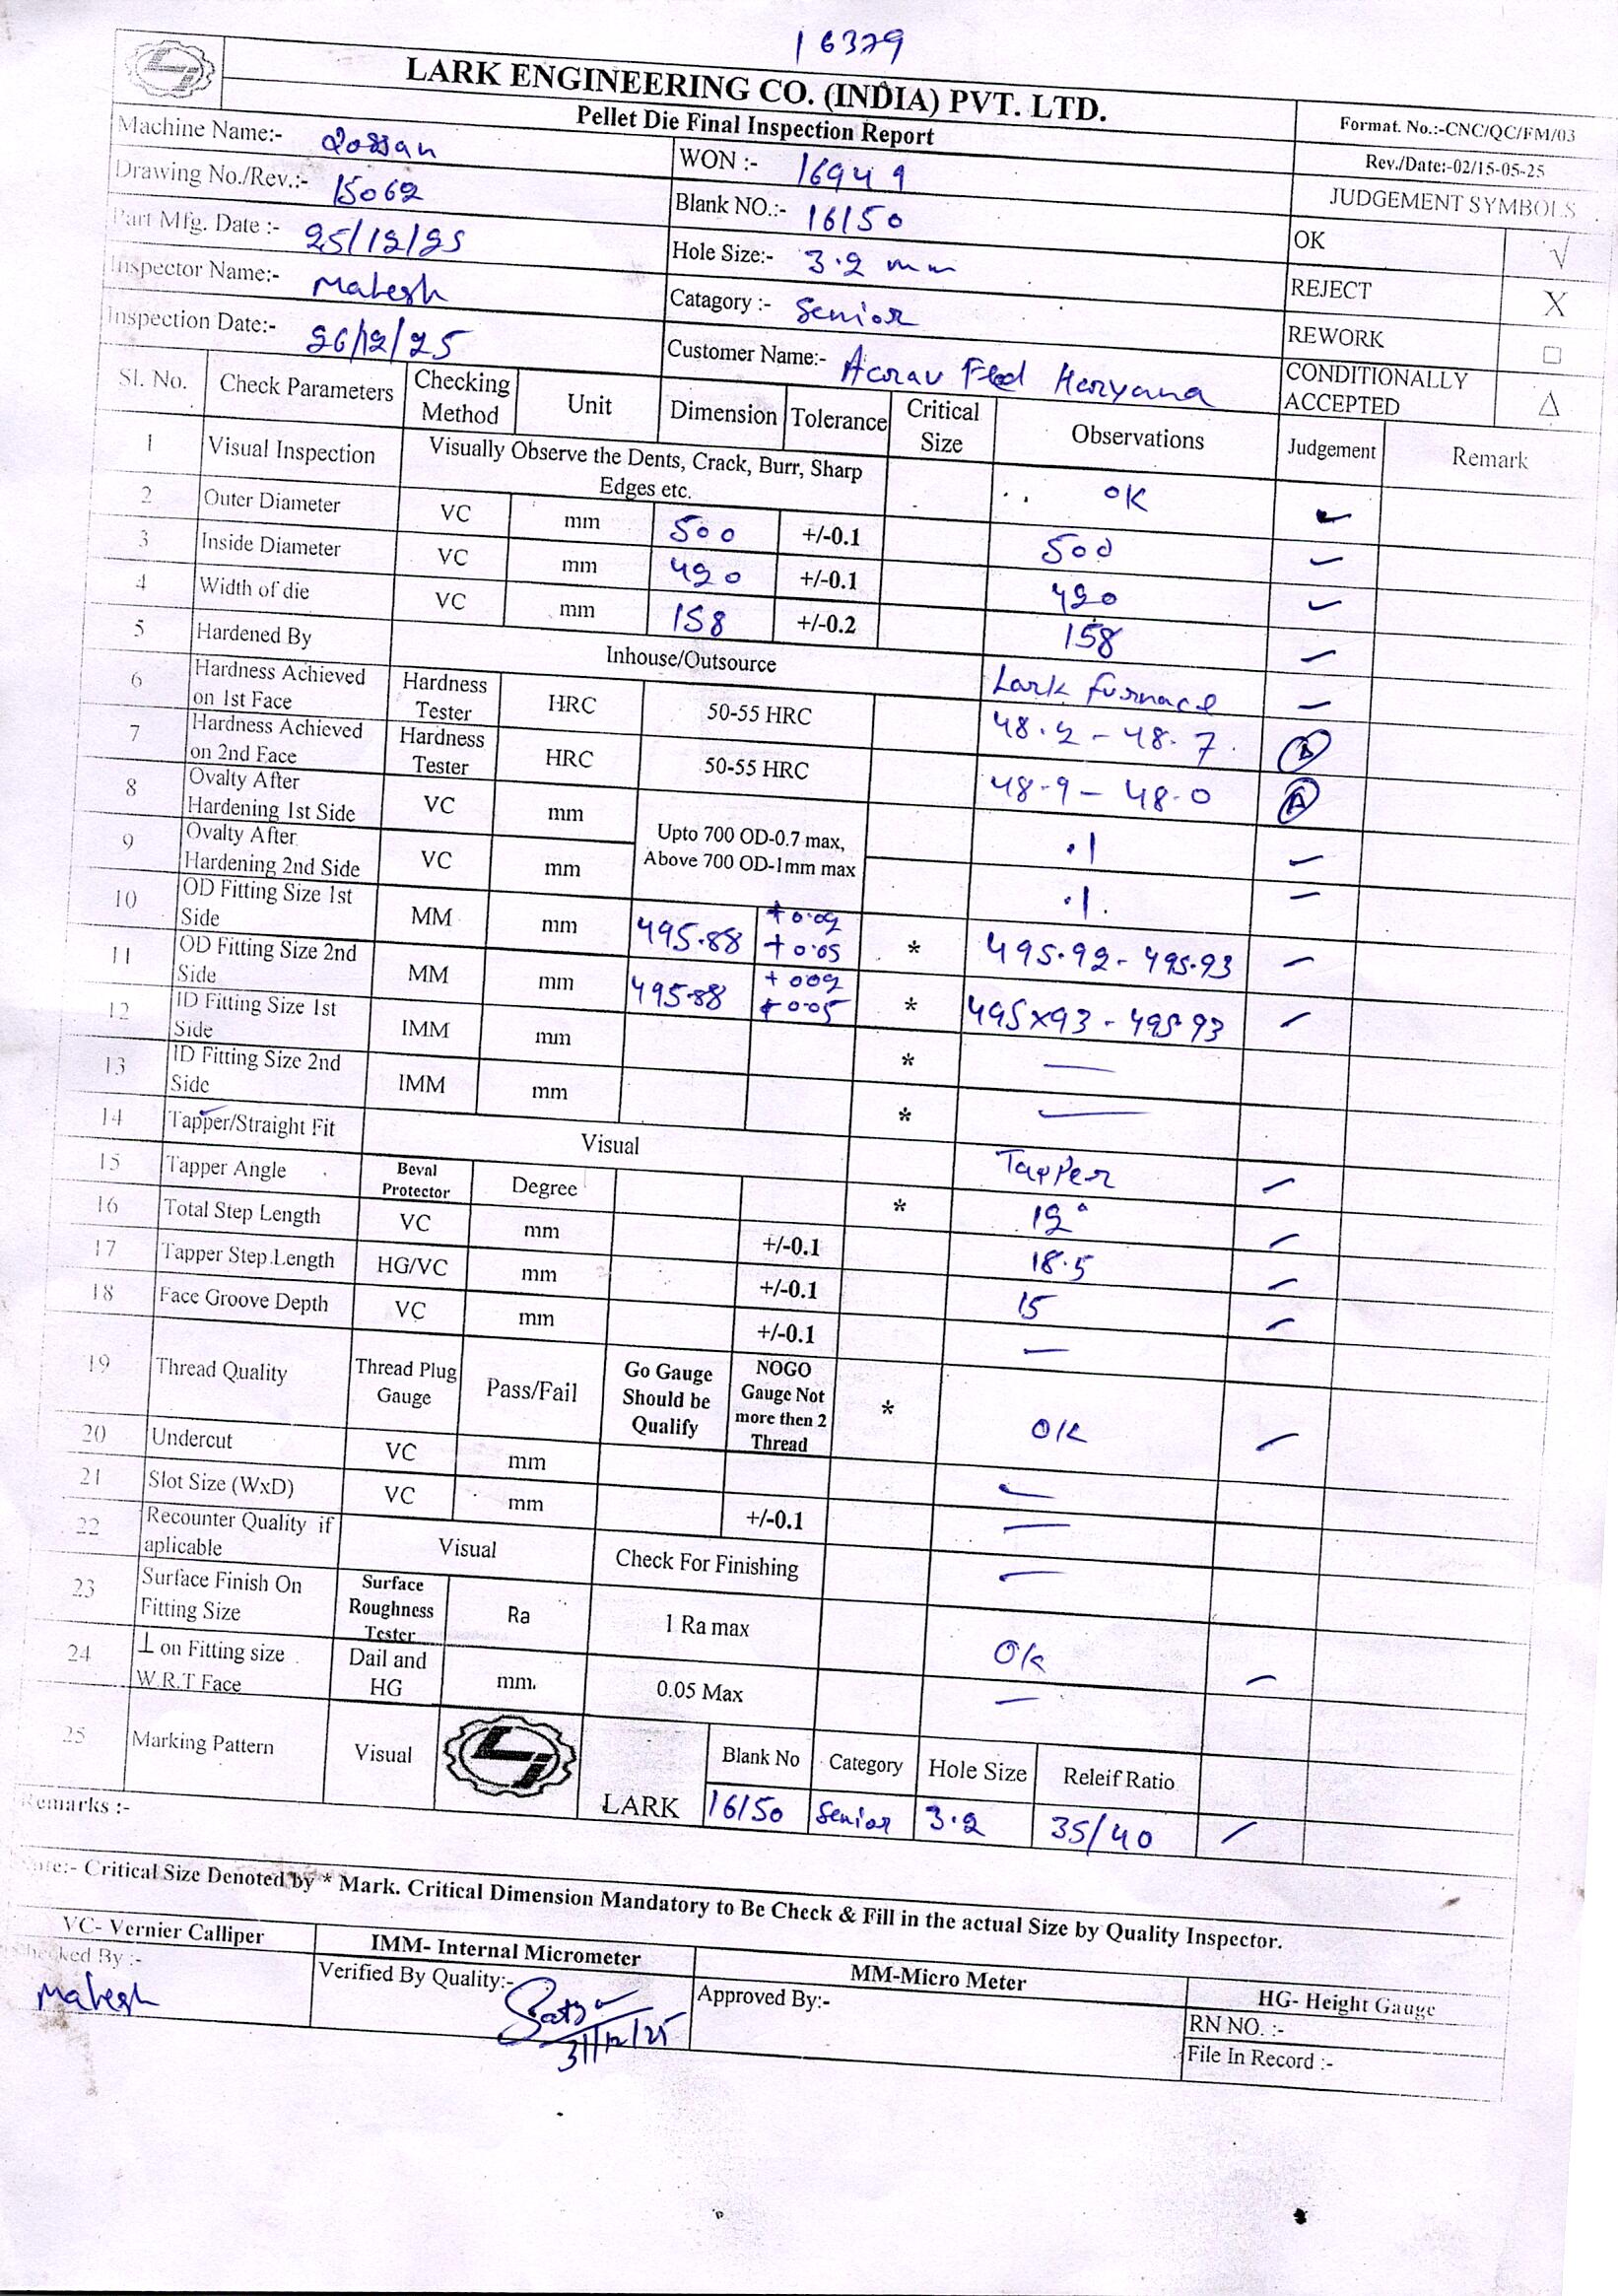 16379
LARK ENGINEERING CO. (INDIA) PVT. LTD.
Pellet Die Final Inspection Report
Format. No.:-CNC/QC/FM/03
Rev./Date:-02/15-05-25
Machine Name:-
WON :- 16949
JUDGEMENT SYMBOLS
Drawing No./Rev.:- 15062
Blank NO.:- 16150
OK √
Part Mfg. Date :- 25/12/25
Hole Size:- 3.2 mm
REJECT X
Inspector Name:- Mahesh
Catagory :- Senior
REWORK □
Inspection Date:- 26/12/25
Customer Name:- Haryana
CONDITIONALLY ACCEPTED △
Sl. No. Check Parameters Checking Method Unit Dimension Tolerance Critical Size Observations Judgement Remark
1 Visual Inspection Visually Observe the Dents, Crack, Burr, Sharp Edges etc. OK ✓
2 Outer Diameter VC mm 500 +/-0.1 500 ✓
3 Inside Diameter VC mm 420 +/-0.1 420 ✓
4 Width of die VC mm 158 +/-0.2 158 ✓
5 Hardened By Inhouse/Outsource Lark furnace ✓
6 Hardness Achieved on 1st Face Hardness Tester HRC 50-55 HRC 48.2 - 48.7
7 Hardness Achieved on 2nd Face Hardness Tester HRC 50-55 HRC 48.9 - 48.0
8 Ovalty After Hardening 1st Side VC mm Upto 700 OD-0.7 max, Above 700 OD-1mm max .1 ✓
9 Ovalty After Hardening 2nd Side VC mm .1 ✓
10 OD Fitting Size 1st Side MM mm 495.88 +0.02 +0.05 * 495.92 - 495.93 ✓
11 OD Fitting Size 2nd Side MM mm 495.88 +002 +0.05 * 495x93 - 495.93 ✓
12 ID Fitting Size 1st Side IMM mm * —
13 ID Fitting Size 2nd Side IMM mm * —
14 Tapper/Straight Fit Visual Tapper ✓
15 Tapper Angle Beval Protector Degree * 12° ✓
16 Total Step Length VC mm +/-0.1 18.5 ✓
17 Tapper Step Length HG/VC mm +/-0.1 15 ✓
18 Face Groove Depth VC mm +/-0.1 —
19 Thread Quality Thread Plug Gauge Pass/Fail Go Gauge Should be Qualify NOGO Gauge Not more then 2 Thread * OK ✓
20 Undercut VC mm —
21 Slot Size (WxD) VC mm +/-0.1 —
22 Recounter Quality if aplicable Visual Check For Finishing —
23 Surface Finish On Fitting Size Surface Roughness Tester Ra 1 Ra max Ok ✓
24 ⊥ on Fitting size W.R.T Face Dail and HG mm. 0.05 Max —
25 Marking Pattern Visual LARK Blank No Category Hole Size Releif Ratio
16150 Senior 3.2 35/40 ✓
Remarks :-
Note:- Critical Size Denoted by * Mark. Critical Dimension Mandatory to Be Check & Fill in the actual Size by Quality Inspector.
VC- Vernier Calliper IMM- Internal Micrometer MM-Micro Meter HG- Height Gauge
Checked By :- Mahesh
Verified By Quality:- 31/12/25
Approved By:-
RN NO. :-
File In Record :-